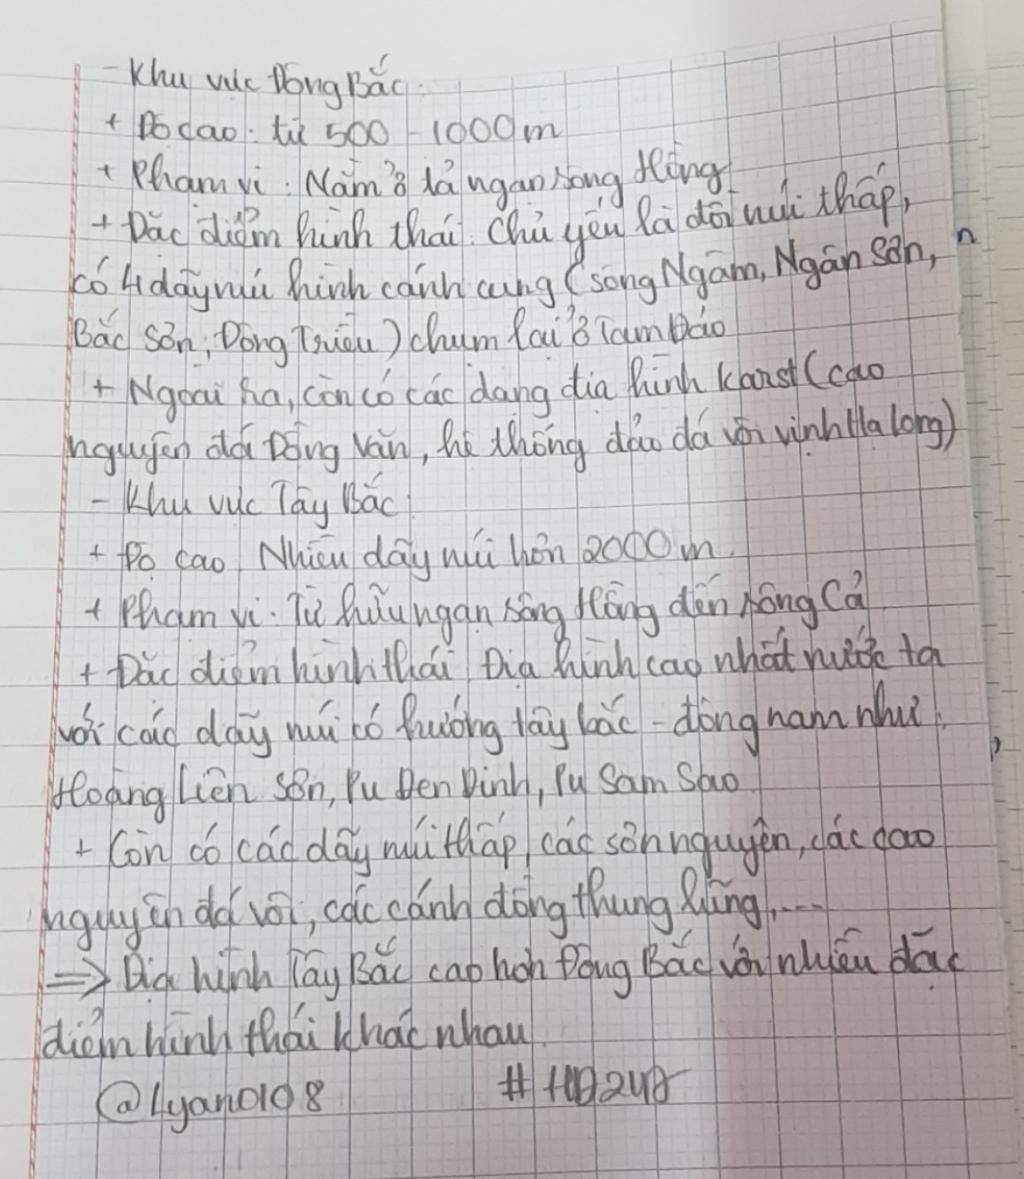 - Khu vực Đông Bắc:
+ Độ cao: từ 500 - 1000m
+ Phạm vi: Nằm ở tả ngạn sông Hồng
+ Đặc điểm hình thái: Chủ yếu là đồi núi thấp,
có 4 dãy núi hình cánh cung (sông Ngâm, Ngân Sơn,
Bắc Sơn, Đông Triều) chụm lại ở Tam Đảo
+ Ngoài ra, còn có các dạng địa hình karst (cao
nguyên đá Đồng Văn, hệ thống đảo đá vôi vịnh Hạ Long)
- Khu vực Tây Bắc:
+ Độ cao: Nhiều dãy núi hơn 2000m.
+ Phạm vi: Từ hữu ngạn sông Hồng đến sông Cả
+ Đặc điểm hình thái: Địa hình cao nhất nước ta
với các dãy núi có hướng tây bắc - đông nam như
Hoàng Liên Sơn, Pu Đen Đinh, Pu Sam Sao
+ Còn có các dãy núi thấp, các sơn nguyên, các cao
nguyên đá vôi, các cánh đồng thung lũng,...
=> Địa hình Tây Bắc cao hơn Đông Bắc với nhiều đặc
điểm hình thái khác nhau
@Lyano108 #HD247